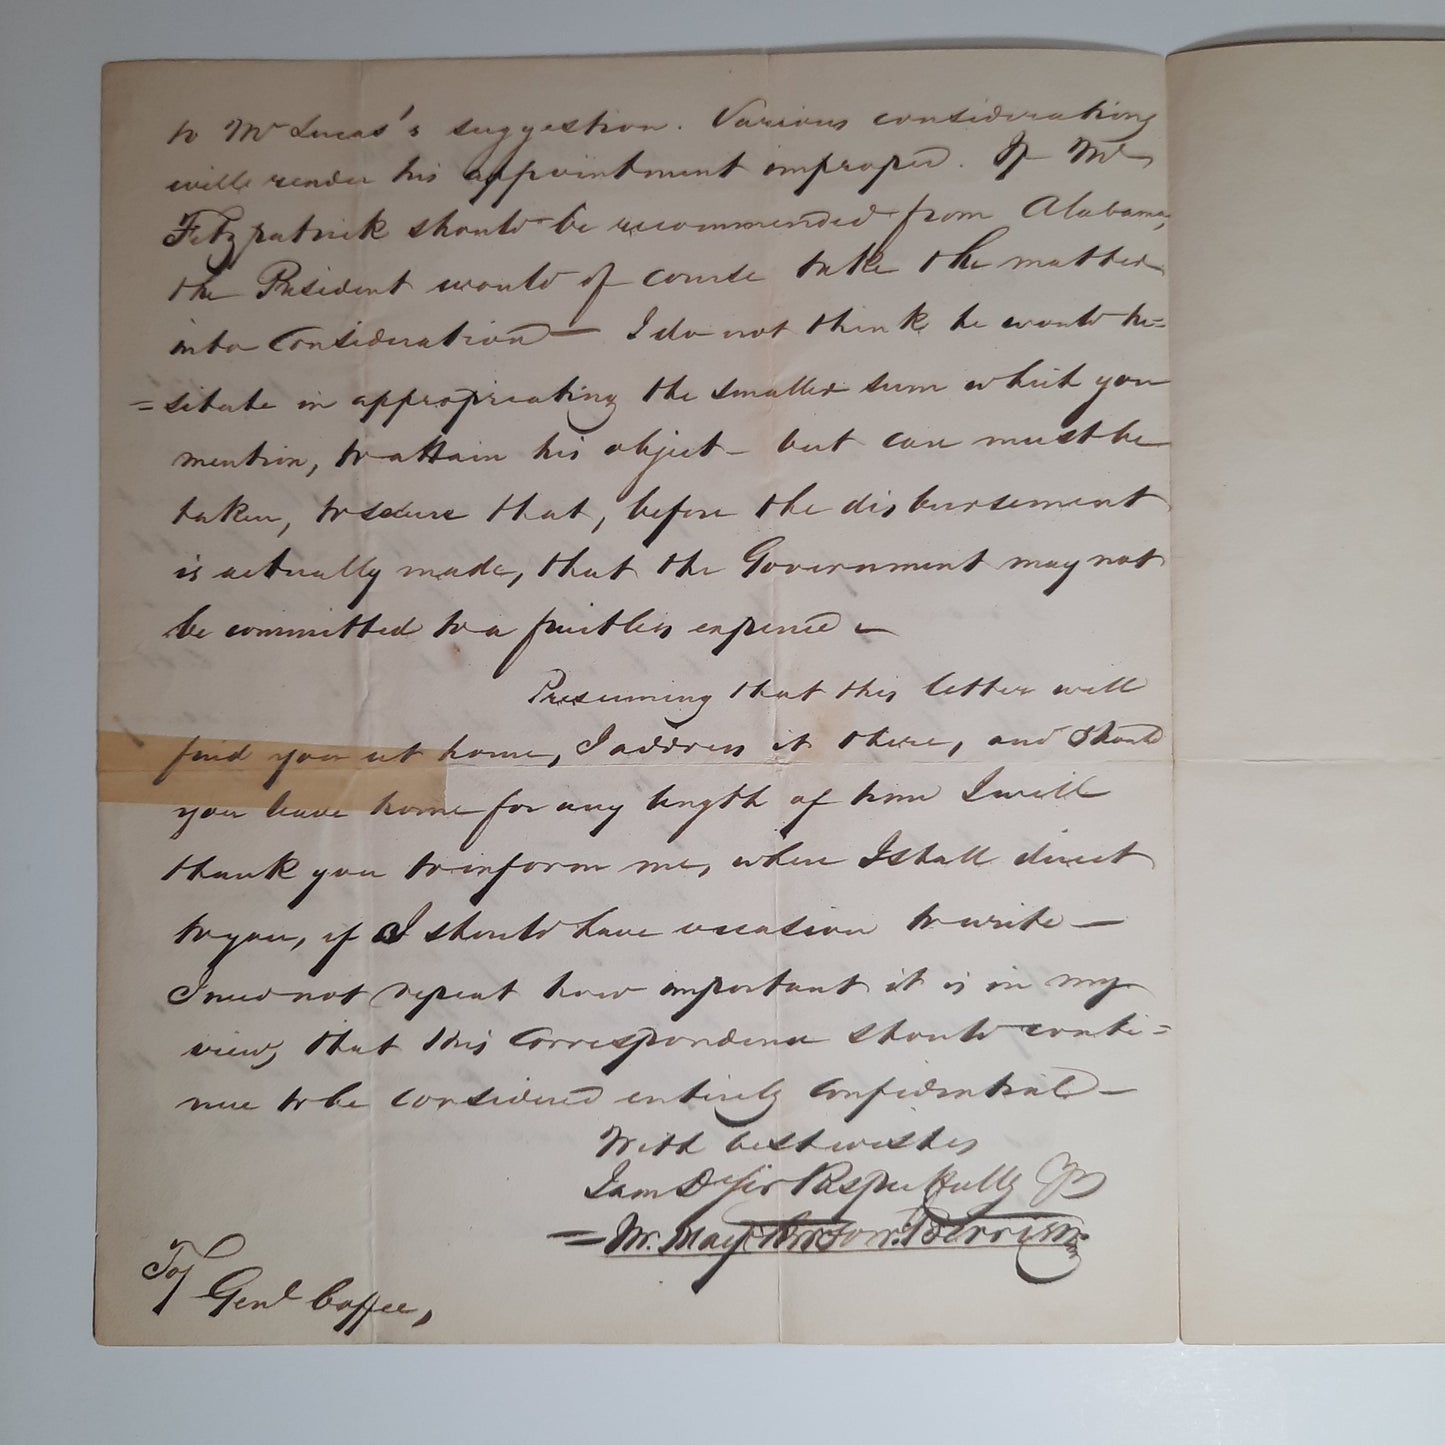 to Mr Lucas's suggestion. Various considerations
will render his appointment improper. If Mr
Fitzpatrick should be recommended from Alabama,
the President would of course take the matter
into Consideration — I do not think he would he=
=sitate in appropriating the smaller sum which you
mention, to attain his object — but care must be
taken, to secure that, before the disbursement
is actually made, that the Government may not
be committed to a fruitless expense —
Presuming that this letter will
find you at home, I address it there, and should
you leave home for any length of time I will
thank you to inform me, where I shall direct
to you, if I should have occasion to write —
I need not repeat how important it is in my
view, that this Correspondence should conti=
nue to be considered entirely Confidential —
With best wishes
I am Dr Sir Respectfully Yrs
To/ Genl Coffee,